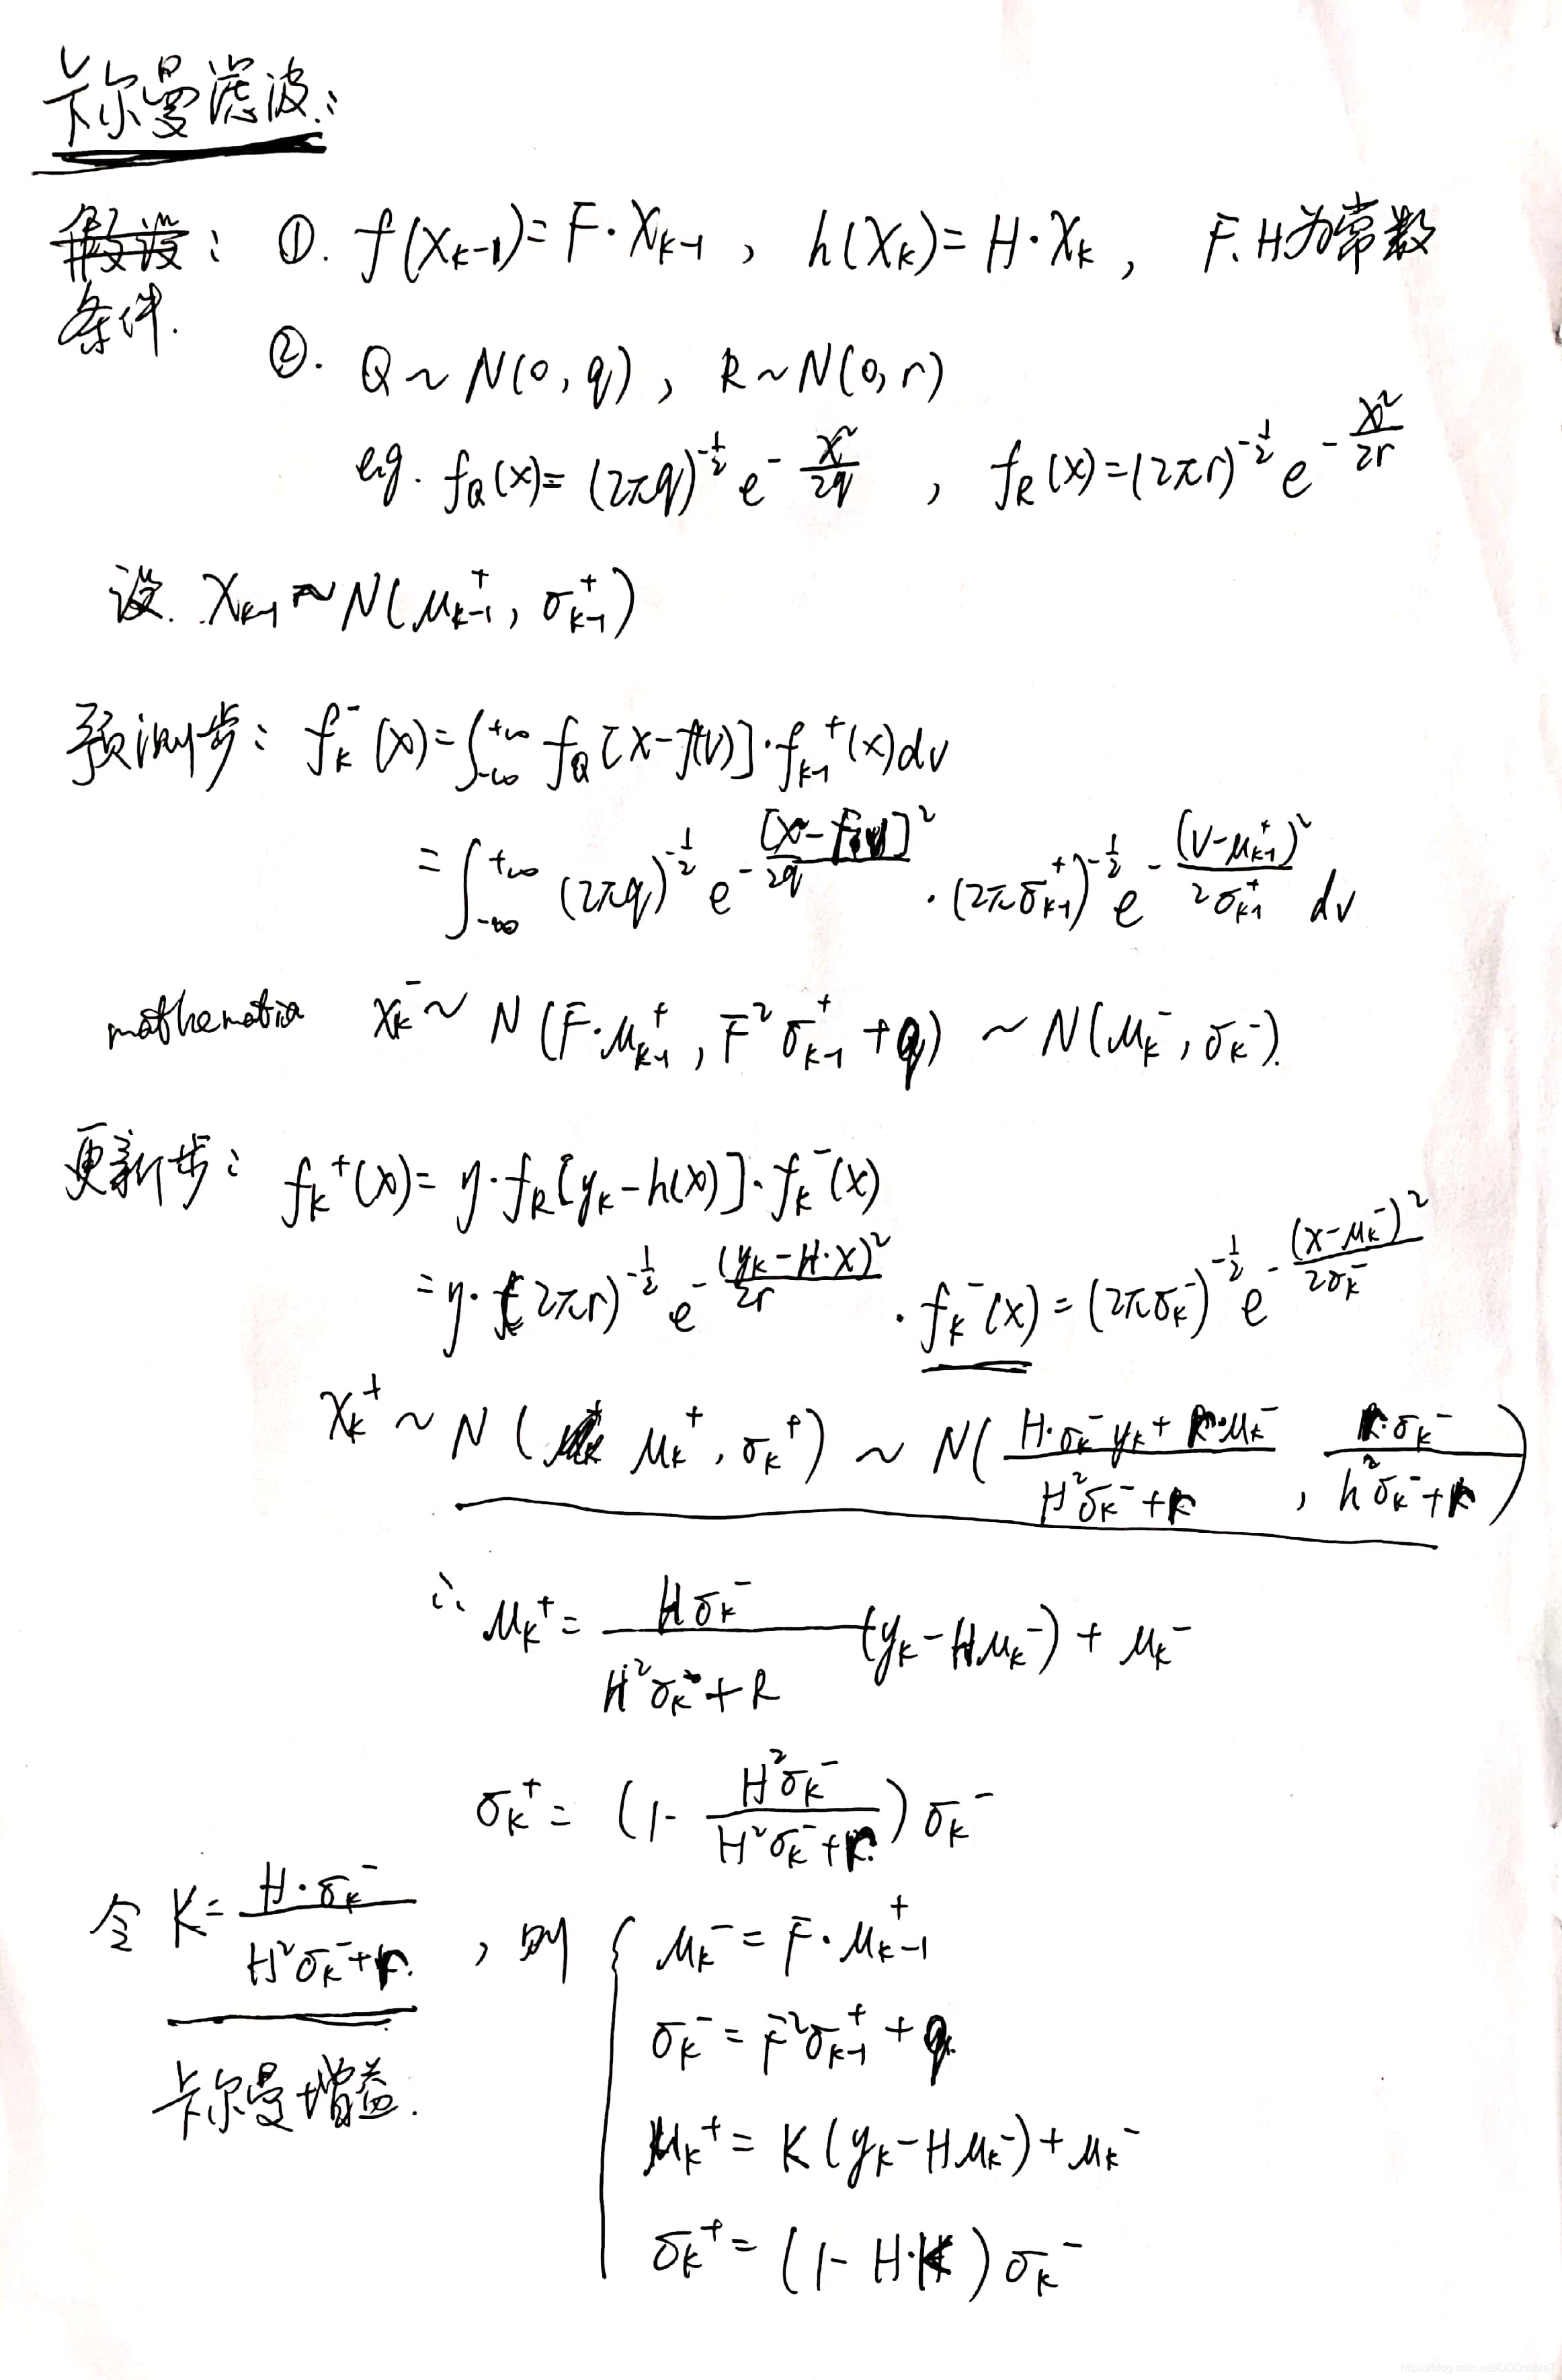 卡尔曼滤波:
假设: ①. f(X_{k-1})=F·X_{k-1}, h(X_k)=H·X_k, F、H为常数
条件.
②. Q~N(0,q), R~N(0,r)
eg. f_Q(x)=(2πq)^{-1/2} e^{-x²/2q}, f_R(x)=(2πr)^{-1/2} e^{-x²/2r}
设. X_{k-1}~N(μ_{k-1}^+, σ_{k-1}^+)
预测步: f_k^-(x)=∫_{-∞}^{+∞} f_Q[x-f(v)]·f_{k-1}^+(x)dv
=∫_{-∞}^{+∞} (2πq)^{-1/2} e^{-[x-F·v]²/2q}·(2πσ_{k-1}^+)^{-1/2} e^{-(v-μ_{k-1}^+)²/2σ_{k-1}^+} dv
mathematia X_k^-~N(F·μ_{k-1}^+, F²σ_{k-1}^++q)~N(μ_k^-, σ_k^-).
更新步: f_k^+(x)=η·f_R[y_k-h(x)]·f_k^-(x)
=η·(2πr)^{-1/2} e^{-(y_k-H·x)²/2r}·f_k^-(x)=(2πσ_k^-)^{-1/2} e^{-(x-μ_k^-)²/2σ_k^-}
X_k^+~N(μ_k^+, σ_k^+)~N((H·σ_k^- y_k+r·μ_k^-)/(H²σ_k^-+r), (r·σ_k^-)/(h²σ_k^-+r))
∴ μ_k^+=(Hσ_k^-)/(H²σ_k^-+R) (y_k-Hμ_k^-)+μ_k^-
σ_k^+=(1-(H²σ_k^-)/(H²σ_k^-+r.))σ_k^-
令 K=(H·σ_k^-)/(H²σ_k^-+r.), 则 { μ_k^-=F·μ_{k-1}^+
σ_k^-=F²σ_{k-1}^++q.
卡尔曼增益.
μ_k^+=K(y_k-Hμ_k^-)+μ_k^-
σ_k^+=(1-H·K)σ_k^-